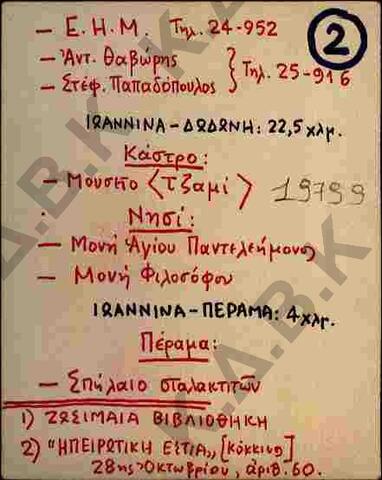 — Ε.Η.Μ. Τηλ. 24-952
②
— Ἀντ. Θαβώρης
— Στέφ. Παπαδόπουλος } Τηλ. 25-916
ΙΩΑΝΝΙΝΑ - ΔΩΔΩΝΗ: 22,5 χλμ.
Κάστρο:
— Μουσεῖο <Τζαμί> 19799
Νησί:
— Μονή Ἁγίου Παντελεήμονος
— Μονή Φιλοσόφου
ΙΩΑΝΝΙΝΑ - ΠΕΡΑΜΑ: 4 χλμ.
Πέραμα:
— Σπήλαιο σταλακτιτῶν
1) ΖΩΣΙΜΑΙΑ ΒΙΒΛΙΟΘΗΚΗ
2) "ΗΠΕΙΡΩΤΙΚΗ ΕΣΤΙΑ„ [κόκκινο]
28ης Ὀκτωβρίου, ἀριθ. 60.
Δ.Β.Κ Δ.Α.Β.Κ Κ.Δ.Α.Β.Κ